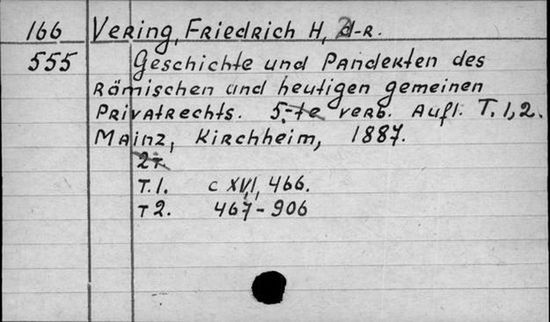 166 Vering, Friedrich H, d-r.
555 Geschichte und Pandekten des
Römischen und heutigen gemeinen
Privatrechts. 5-te verb. Aufl. T. 1, 2.
Mainz, Kirchheim, 1887.
2т.
T. 1. c XVI, 466.
T 2. 467-906